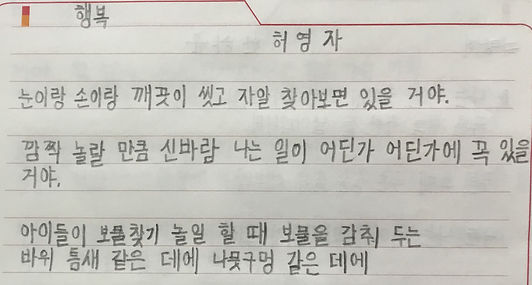 행복
허영자
눈이랑 손이랑 깨끗이 씻고 자알 찾아보면 있을 거야.
깜짝 놀랄 만큼 신바람 나는 일이 어딘가 어딘가에 꼭 있을
거야.
아이들이 보물찾기 놀일 할 때 보물을 감춰 두는
바위 틈새 같은 데에 나뭇구멍 같은 데에